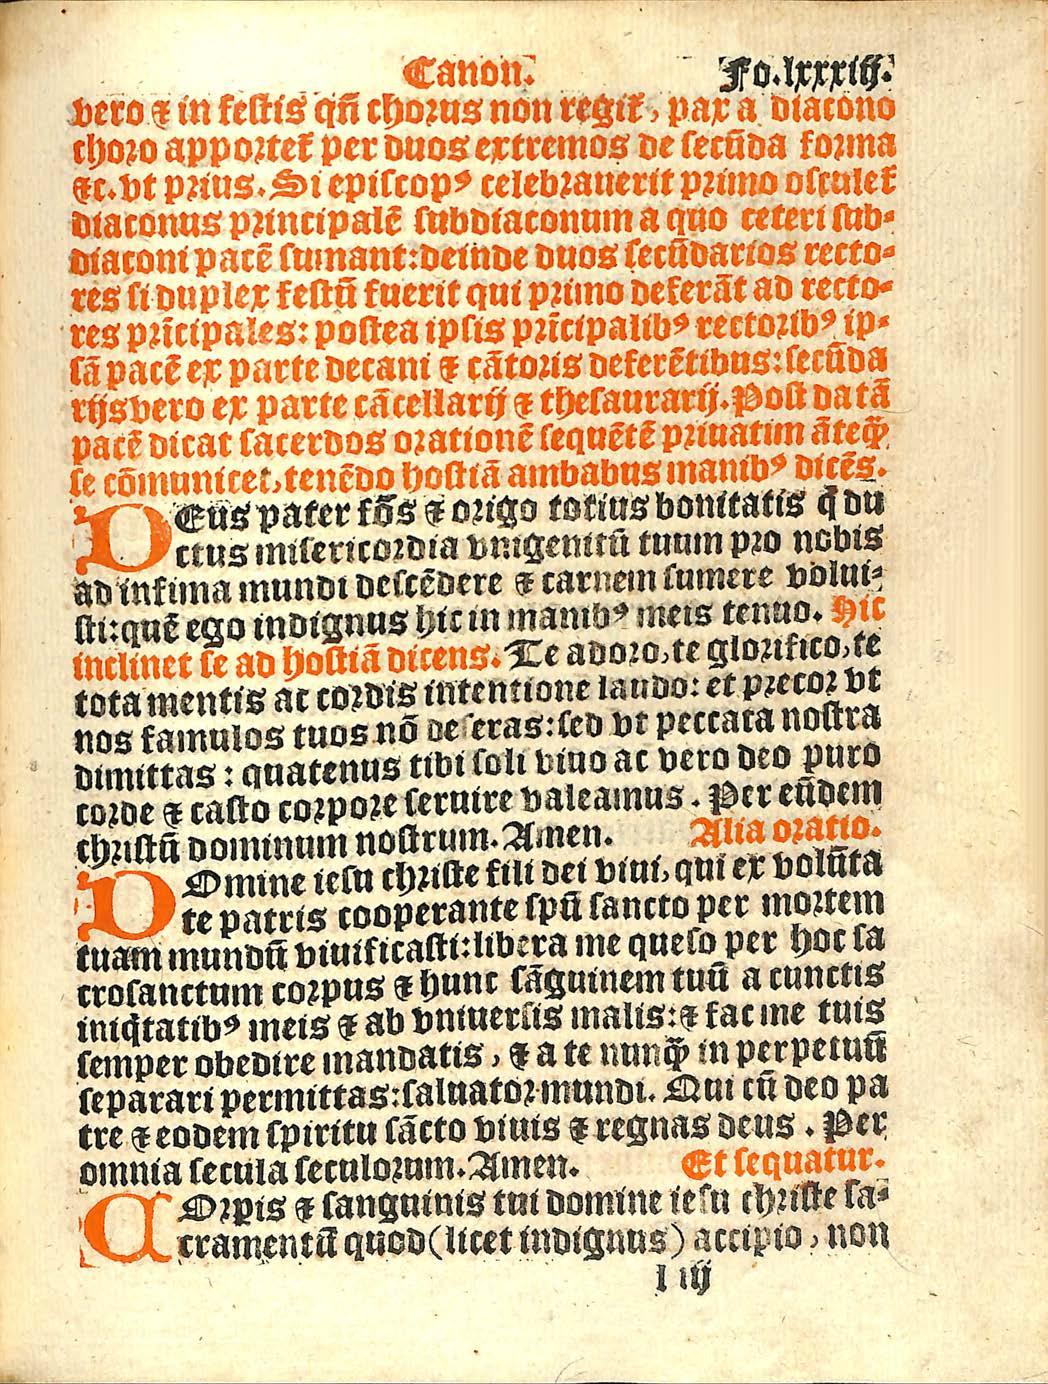 Canon. Fo.lxxxiij.
vero ⁊ in festis qñ chorus non regit̃, pax a diacono
choro apportet̃ per duos extremos de secũda forma
⁊c. vt prius. Si episcopꝰ celebrauerit primo osculet̃
diaconus principalẽ subdiaconum a quo ceteri sub⸗
diaconi pacẽ sumant: deinde duos secũdarios recto⸗
res si duplex festũ fuerit qui primo deferãt ad recto⸗
res prĩcipales: postea ipsis prĩcipalibꝰ rectoribꝰ ip⸗
sã pacẽ ex parte decani ⁊ cãtoris deferẽtibus: secũda
rijs vero ex parte cãcellarij ⁊ thesaurarij. Post datã
pacẽ dicat sacerdos orationẽ sequẽtẽ priuatim ãteq̃ꝫ
se cõmunicet, tenẽdo hostiã ambabus manibꝰ dicẽs.
DEus pater fõs ⁊ origo totius bonitatis q̃ du
ctus misericordia vnigenitũ tuum pro nobis
ad infima mundi descẽdere ⁊ carnem sumere volui⸗
sti: quẽ ego indignus hic in manibꝰ meis teneo. Hic
inclinet se ad hostiã dicens. Te adoro, te glorifico, te
tota mentis ac cordis intentione laudo: et precor vt
nos famulos tuos nõ deseras: sed vt peccata nostra
dimittas : quatenus tibi soli viuo ac vero deo puro
corde ⁊ casto corpore seruire valeamus . Per eũdem
christũ dominum nostrum. Amen. Alia oratio.
DOmine iesu christe fili dei viui, qui ex volũta
te patris cooperante spũ sancto per mortem
tuam mundũ viuificasti: libera me queso per hoc sa
crosanctum corpus ⁊ hunc sãguinem tuũ a cunctis
iniq̃tatibꝰ meis ⁊ ab vniuersis malis: ⁊ fac me tuis
semper obedire mandatis , ⁊ a te nunq̃ꝫ in perpetuũ
separari permittas: saluator mundi. Qui cũ deo pa
tre ⁊ eodem spiritu sãcto viuis ⁊ regnas deus . Per
omnia secula seculorum. Amen. Et sequatur.
COrpis ⁊ sanguinis tui domine iesu christe sa⸗
cramentũ quod (licet indignus) accipio , non
l iij